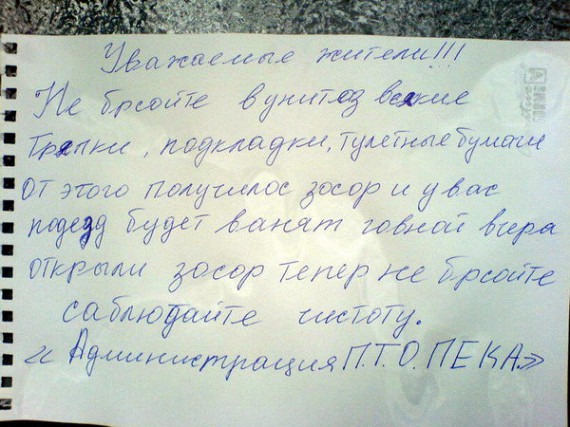 Уважаемые жители!!!
Не брсойте в унитоз всякие
Тряпки, подкладки, тулетные бумаги
от этого получилос зосор и у вас
подезд будет ванят говной вчера
открыли зосор тепер не брсойте
саблюдайте чистоту.
«Администрация П.Т.О. ПЕКА.»